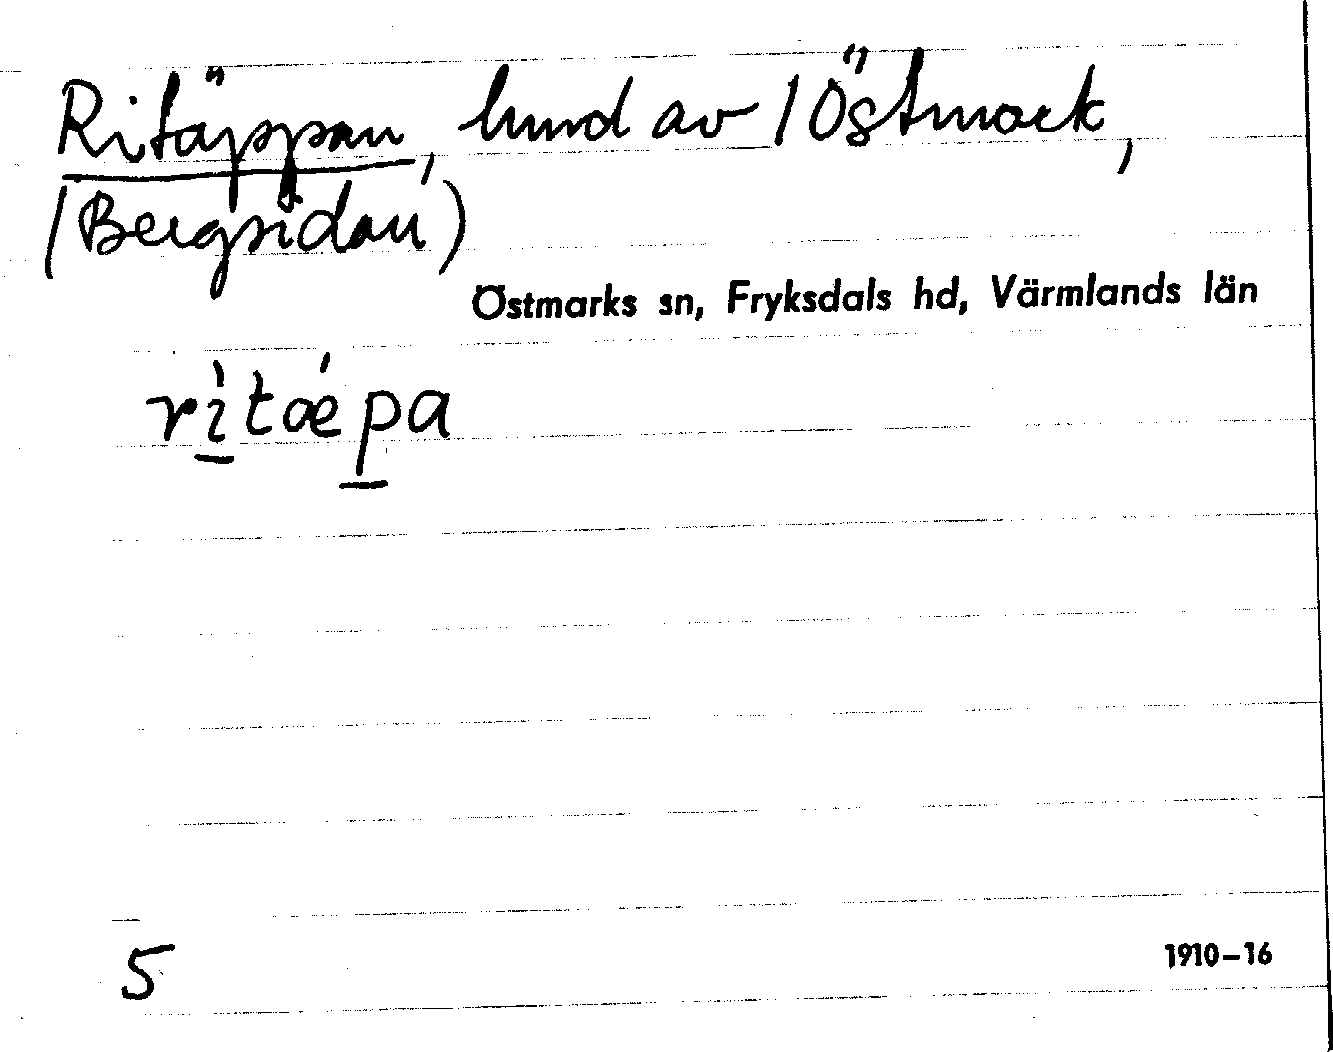 Ritäppan, hmd av 1 Östmark,
(Bergsidan)
Östmarks sn, Fryksdals hd, Värmlands län
rìtǽpa
5
1910–16